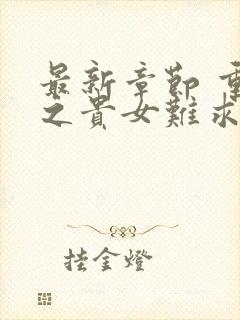 最新章節 重
之貴女難求
挂金燈